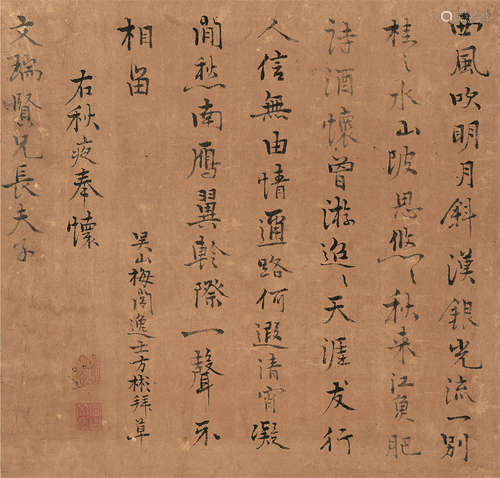 西風吹明月斜漢銀光流一別
桂之水山陂思悠〻秋来江魚肥
詩酒懷曽游迢〻天涯友行
人信無由情邇路何遐清宵凝
閒愁南鴈翼乾際一聲不
相留
右秋夜奉懷
吴山梅閣逸士方彬拜草
文瑞賢兄長夫子